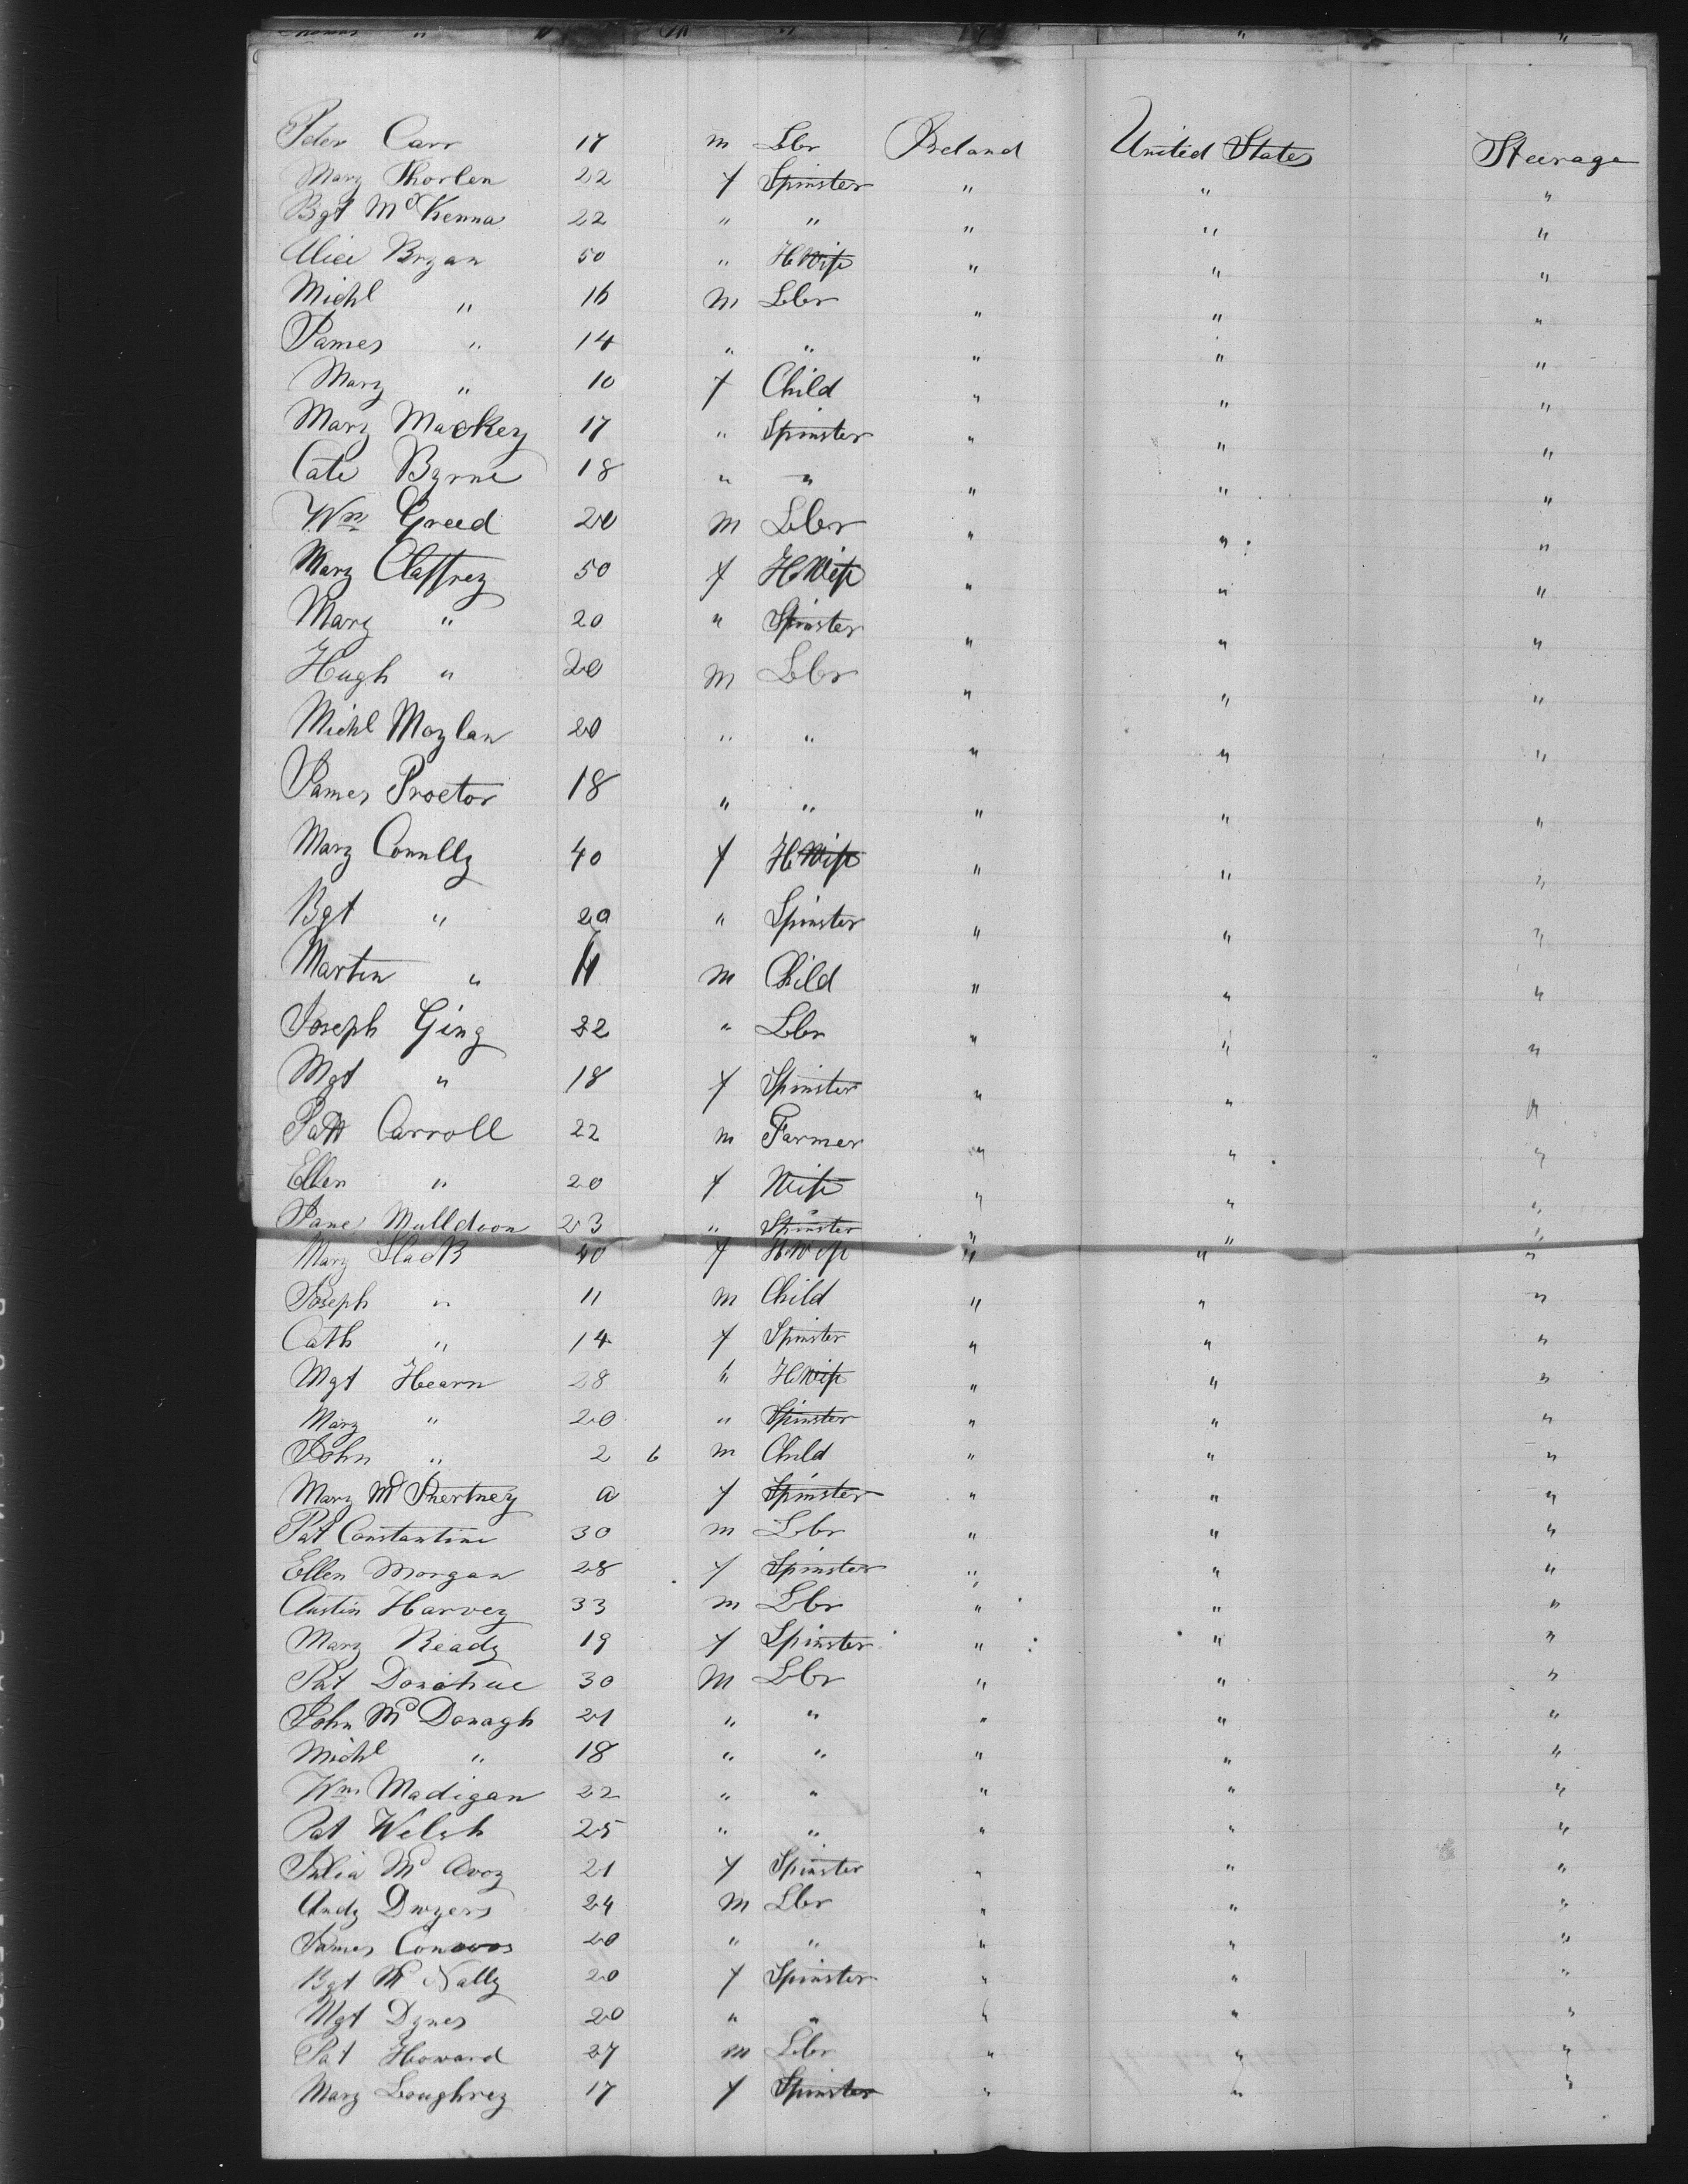 Peter Carr 17 m Lbr Ireland United States Steerage
Mary Thorlen 22 f Spinster " " "
Bgt McKenna 22 " " " " "
Alice Bryan 50 " H Wife " " "
Michl " 16 m Lbr " " "
James " 14 " " " " "
Mary " 10 f Child " " "
Mary Mackey 17 " Spinster " " "
Cate Byrne 18 " " " " "
Wm Greed 20 m Lbr " " "
Mary Claffrey 50 f H Wife " " "
Mary " 20 " Spinster " " "
Hugh " 20 m Lbr " " "
Michl Moylan 20 " " " " "
James Proctor 18 " " " " "
Mary Connlly 40 f H Wife " " "
Bgt " 20 " Spinster " " "
Martin " m Child " " "
Joseph Ging 22 " Lbr " " "
Mgt " 18 f Spinster " " "
Patt Carroll 22 m Farmer " " "
Ellen " 20 f Wife " " "
Jane Mulldoon 23 " Spinster " " "
Mary Slack 40 f H Wife " " "
Joseph " 11 m Child " " "
Cath " 14 f Spinster " " "
Mgt Hearn 28 " H Wife " " "
Mary " 20 " Spinster " " "
John " 2 6 m Child " " "
Mary a f Spinster " " "
Pat Constantine 30 m Lbr " " "
Ellen Morgan 28 f Spinster " " "
Austin Harvey 33 m Lbr " " "
Mary Ready 19 f Spinster " " "
Pat Donohue 30 m Lbr " " "
John McDonagh 21 " " " " "
Michl " 18 " " " " "
Wm Madigan 22 " " " " "
Pat Welsh 25 " " " " "
Julia McAvoy 21 f Spinster " " "
Andy Dwyers 24 m Lbr " " "
James 20 " " " " "
Bgt McNally 20 f Spinster " " "
Mgt Dynes 20 " " " " "
Pat Howard 27 m Lbr " " "
Mary Loughrey 17 f Spinster " " "